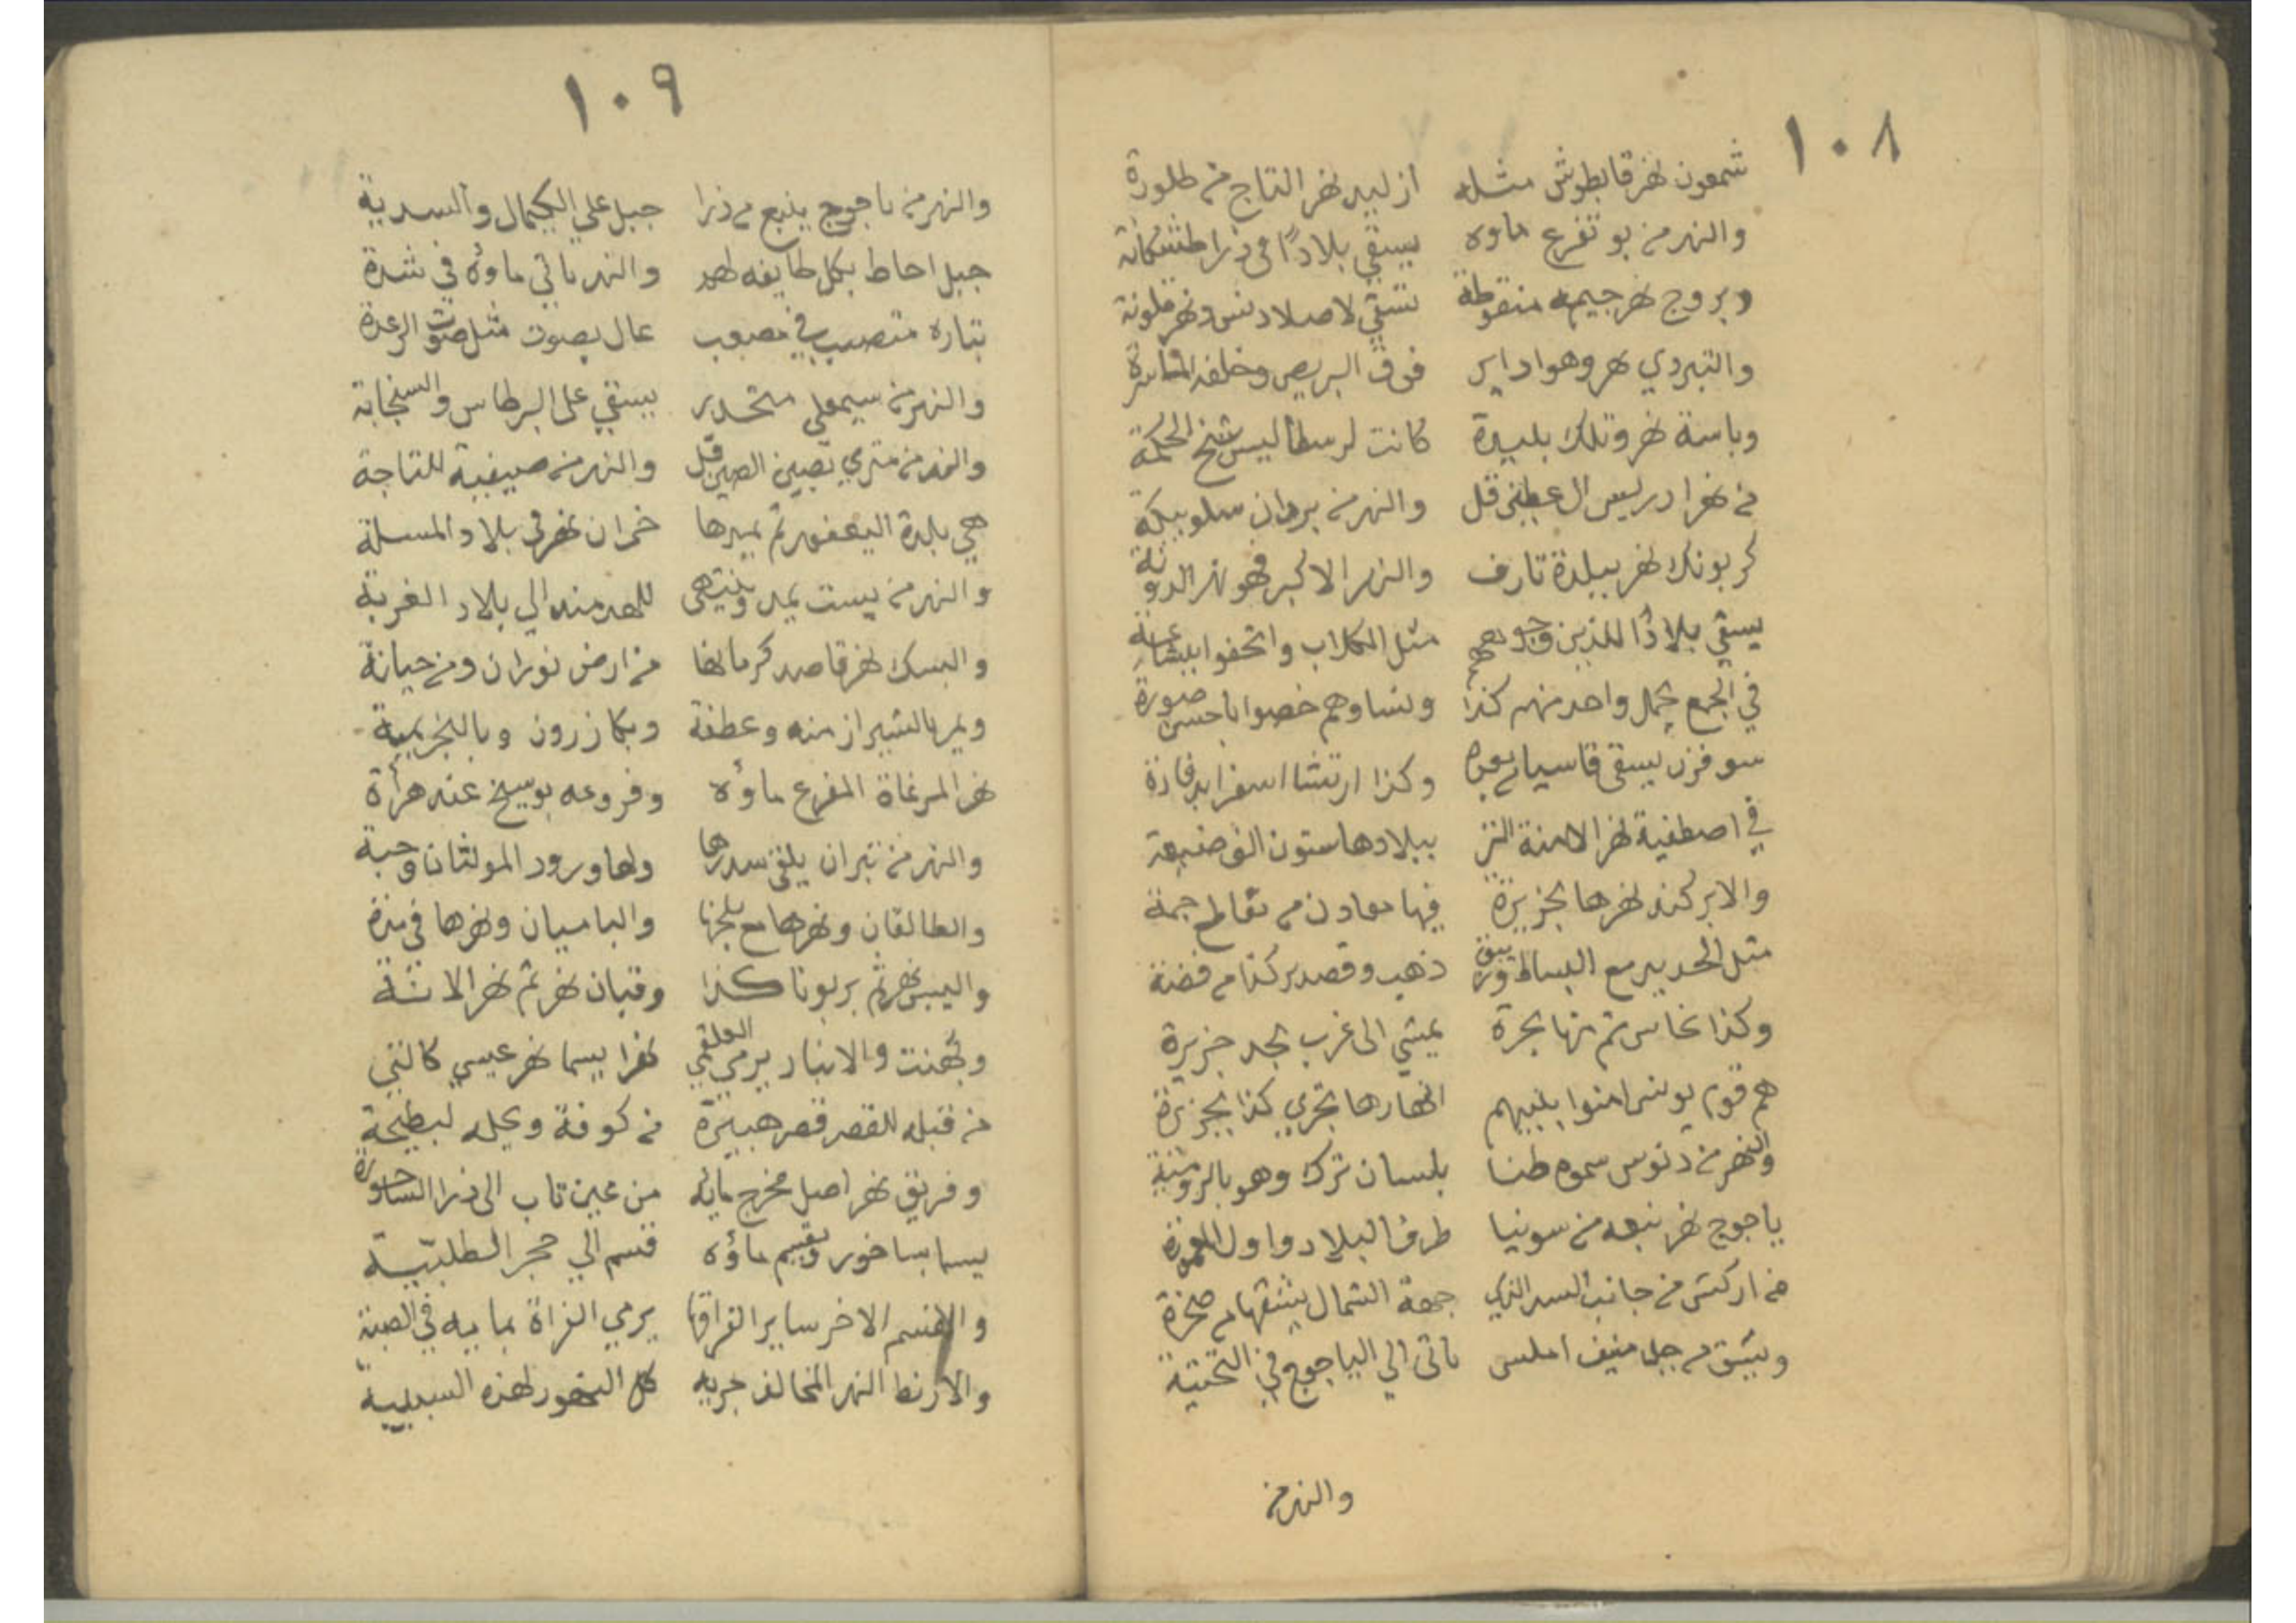 ١٠٨
شمعون نهر قابطوش مثله از لبيد نهر التاج من طلورة
والنهر من بو تفرع ماوه يسقي بلادًا في ذرا طشكانة
وبروج نهر جيمه منقوطة تسقي لاصلادنس ونهر ملونة
والتبردي نهر وهو داير فوق البريص وخلفه
وباسة نهر وتلك بليدة كانت لرسطاليس شيخ الحكمة
من نهر ادريس ال عطني قل والنهر من بردان سلوبيكة
كربونك نهر ببلدة تارف والنهر الاكبر فهو نهر الدونة
يسقي بلادًا للذين وجوههم مثل الكلاب واتحفوا ببشاعة
في الجمع يحمل واحد منهم كذا ونساوهم خصوا باحسن صورة
سوفزن يسقي قاسيا وكذا ارتشا اسفرا بدفادة
في اصطفية نهر الامنة التز ببلادها ستون الف ضيعة
والابركند نهرها بجزيرة فيها معادن من نقاطع جمة
مثل الحديد مع البساط وزيبق ذهب وقصدير كذا من فضة
وكذا نحاس ثم منها بحرة يمشي الى غرب بحد جزيرة
هم قوم يونس امنوا بنبيهم انهارها تجري كذا بجزيرة
والنهر من دنوس سموه طنا بلسان ترك وهو بالرومية
ياجوج نهر نبعه من سونيا طرف البلاد واول المعمورة
من اركش من جانب السد الذي جهة الشمال يشقها من صخرة
ويشق من جبل منيف املس ياتي الي الياجوج في التحتية
والنهر من
١٠٩
والنهر من ياجوج ينبع من ذرا جبل علي الكيمال والسدية
جبل احاط بكل طايفه لهم والنهر ياتي ماوه في شدة
بتاره متصبب في مصعب عال بصوت مثل صوت الرعدة
والنهر من سيمعلي متحدر يسقي على البرطاس والسنجابة
والنهر من متري بصين الصين قل والنهر من صيفية للتاجة
هي بلدة اليعفور ثم يميرها خمران نهر في بلاد المسلة
والنهر من بيست يمد وينتهي للهد منه الي بلاد الغربة
والبسك نهر قاصد كرمانها من ارض نوران ومن حيانة
ويمر بالشيراز منه وعطفة وبكازرون وبالنجربمية
نهر المرغاة المفرع ماؤه وفروعه بوسيخ عند هرأة
والنهر من تيران يلقي سدرها ولها ورود المولتان وحبة
والطالقان ونهرها مع بلجها والباميان ونهرها في مدة
واليبس نهر ثم بربونا كذا وقيان نهر ثم نهر الانثة
وبهنت والانبار يرمي في العلقمي نهرا يسما نهر عيسي كالتي
من قبله للقصر قصر هبيرة من كوفة ويحله لبطيحة
وفريق نهر اصل مخرج مائه من عين تاب الى ذرا الساحورة
يسما بساخور وتقسيم ماؤه قسم الي حجر الطلبية
والقسم الاخر ساير الفراقها يرمي الفراة بمايه في الصبة
والارنط النهر المخالف جريه كل النحور لهذه السببية